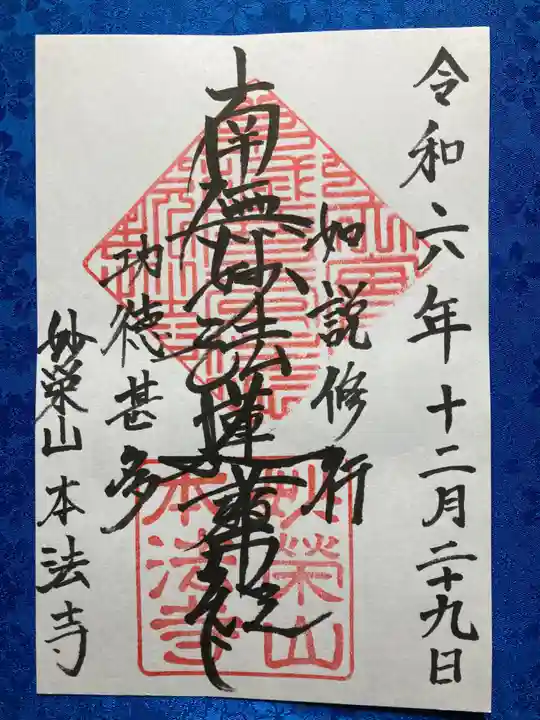 令和六年十二月二十九日
如説修行
南無妙法蓮華経
功徳甚多
妙榮山本法寺
妙榮山
本法寺